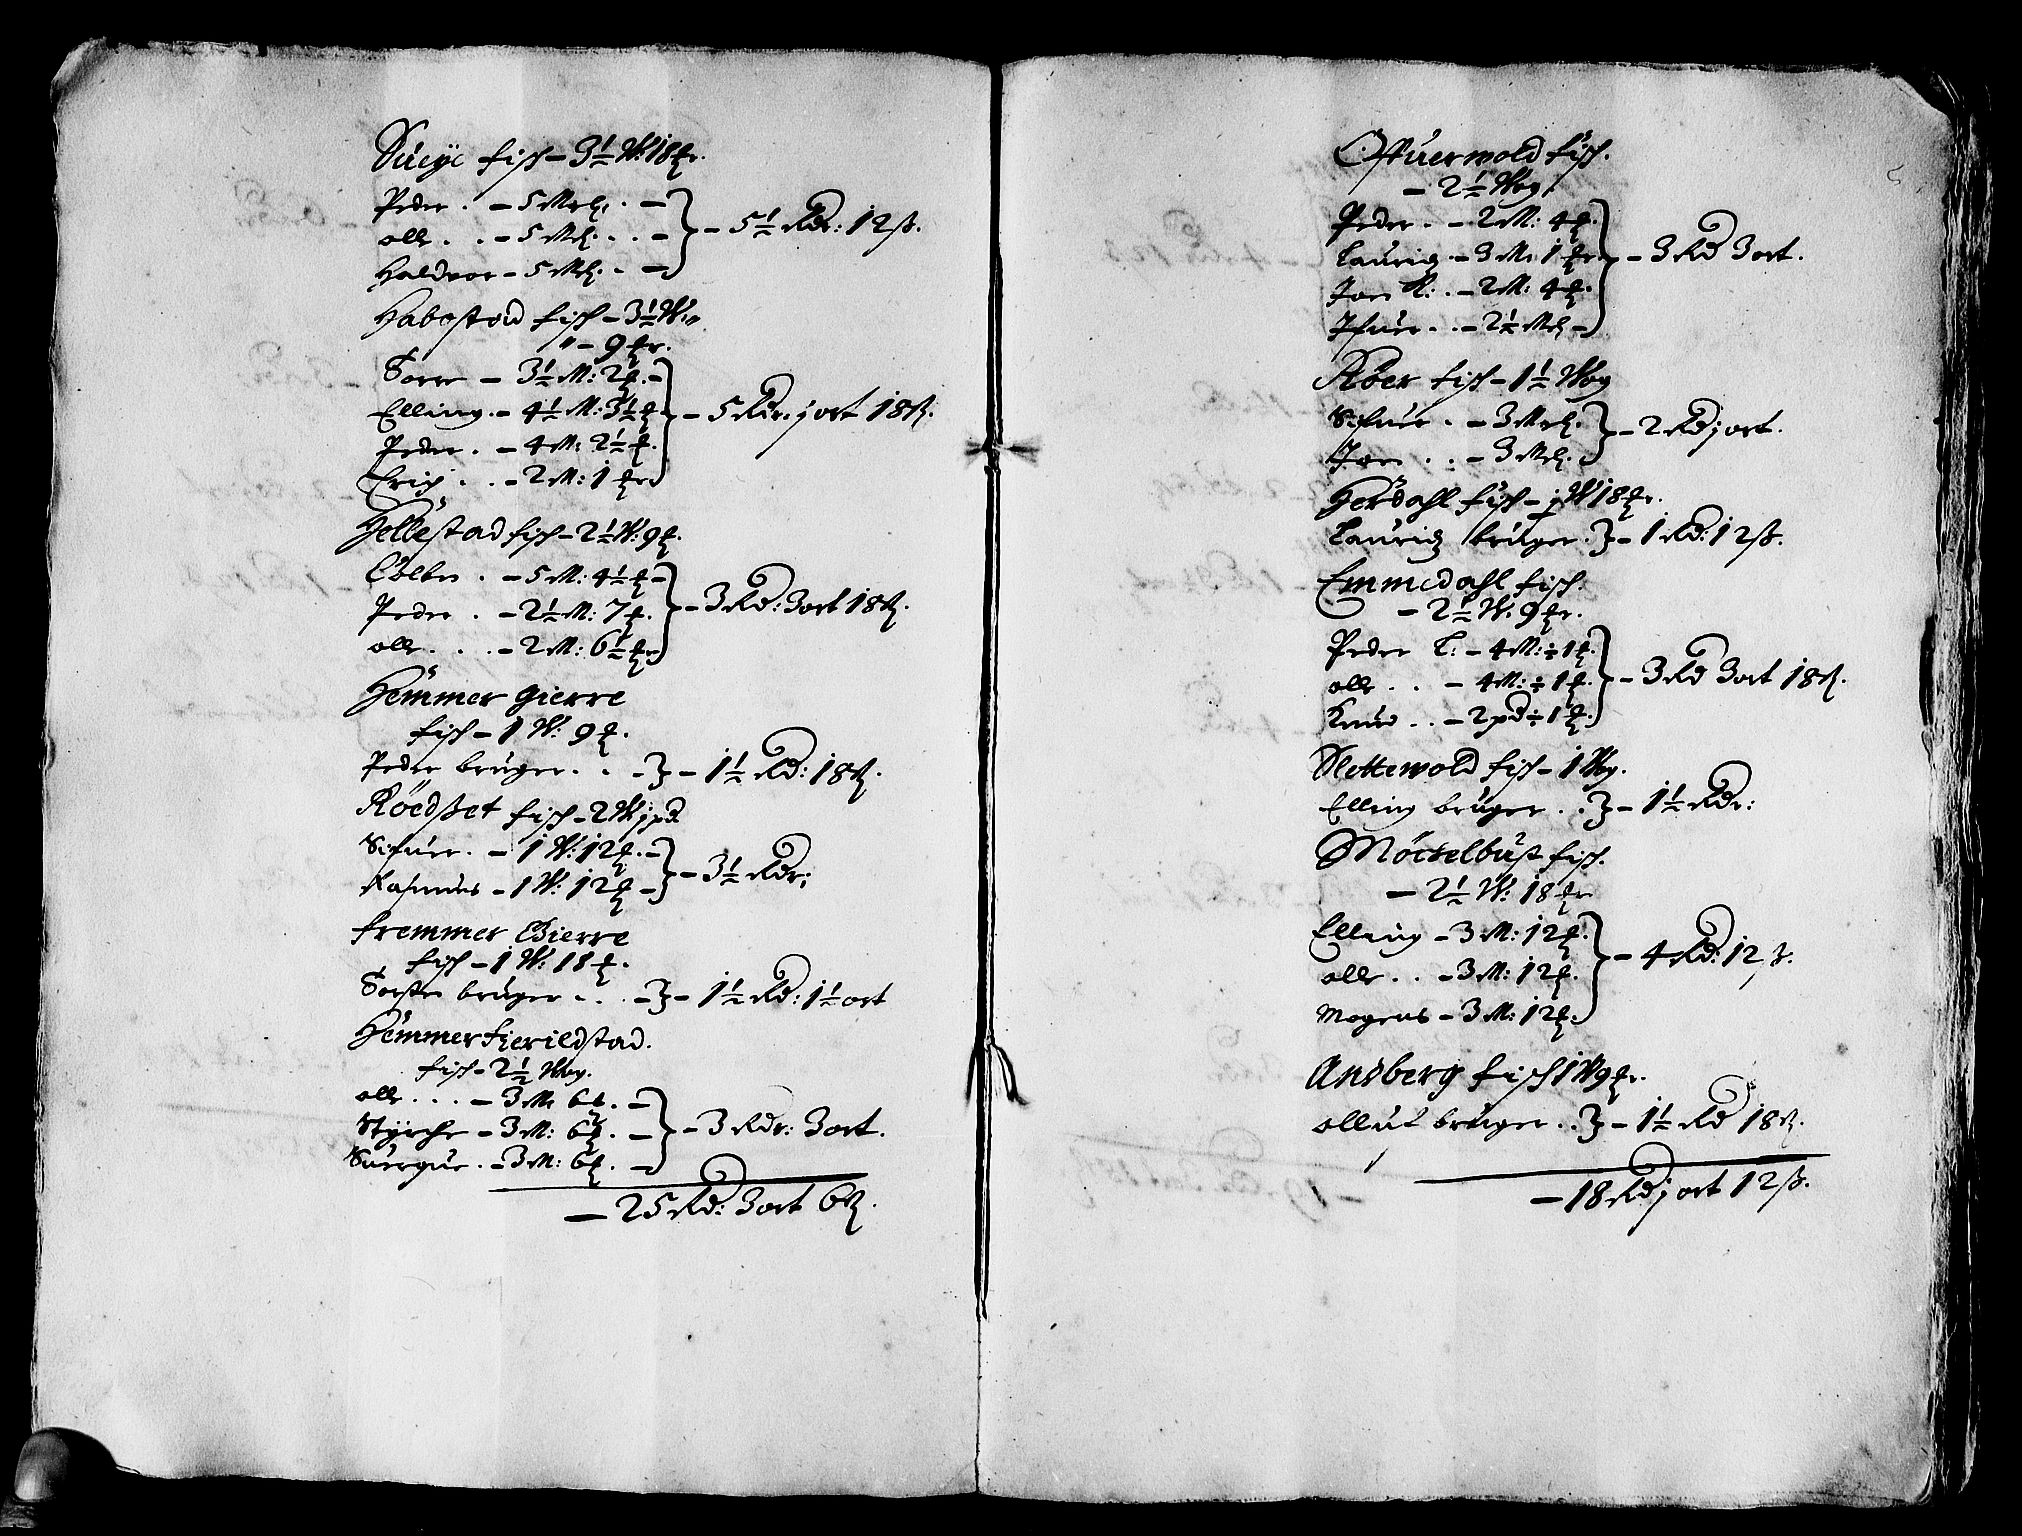 Sueÿe fisch – 3½ W: 18 ℔r.
Peder . – 5 Mel. –
olle . . – 5 Mel. . . –
Haldvor – 5 Mel. . –
– 5½ Rdr: 12 ß.
Habostad fisch – 3½ W:
" – 9 ℔r.
Torre – 3½ M: 2 ℔. –
Elling. – 4½ M: 3½ ℔.
Peder . – 4 M: 2½ ℔.
Erich . . – 2 M: 1 ℔r
– 5 Rdr. j ort 18 ß.
Hellestad fisch – 2½ W: 9 ℔.
Colben . – 5 M: 4½ ℔ –
Peder . – 2½ M: 7 ℔.
olle . . . – 2 M: 6½ ℔r
– 3 Rd: 3 ort 18 ß.
Hemmer gierre
fisch – 1 W: 9 ℔.
Peder brüger . . – 1½ Rd: 18 ß.
Röedßet fisch – 2 W j pd
Sifuer. – 1 W: 12 ℔. –
Rasmus – 1 W: 12 ℔ –
– 3½ Rdr;
fremmer Gierre
fisch – 1 W: 18 ℔.
Torsten brüger – . . – 1½ Rd: 1½ ort
Hemmer fierildstad.
fisch – 2½ Wog.
olle . . . – 3 M: 6 ℔. –
Styrche – 3 M: 6 ℔. –
Suergue . – 3 M: 6 ℔. –
– 3 Rdr: 3 ort.
– 25 Rd: 3 ort 6 ß.
Ofuerwold fisch.
– 2½ Wog.
Peder . – 2 M: 4 ℔.
Lauridz – 3 M: 1 ℔r
Joen R: . – 2 M: 4 ℔.
Ifuer . . – 2½ Mel –
– 3 Rd 3 ort.
Röer fisch – 1½ Wog
Sifuer . – 3 Mel.
Joen . . – 3 Mel.
– 2 Rd j ort.
Herdahl fisch – j W 18 ℔r.
Lauridz brüger . – 1 Rd: 12 ß.
Emmedahl fisch:
– 2½ W: 9 ℔r.
Peder L: – 4 M: ÷ 1 ℔.
olle . . – 4 M: ÷ 1 ℔.
Knud . . – 2 pd ÷ 1 ℔.
– 3 Rd 3 ort 18 ß.
Slettewold fisch – 1 Wog.
Elling brüger . . – 1½ Rdr:
Möckelbust fisch.
– 2½ W: 18 ℔r
Elling – 3 M: 12 ℔.
olle . . – 3 M: 12 ℔.
Mogens – 3 M: 12 ℔.
– 4 Rd: 12 ß.
Andberg fisch 1 W 9 ℔r.
olluf brüger . . – 1½ Rd 18 ß.
– 18 Rd j ort 12 ß.